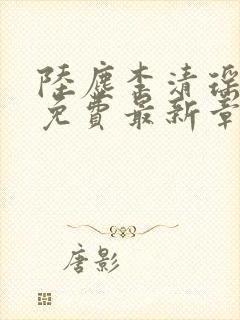 陸塵李清瑤
免費最新章
唐影